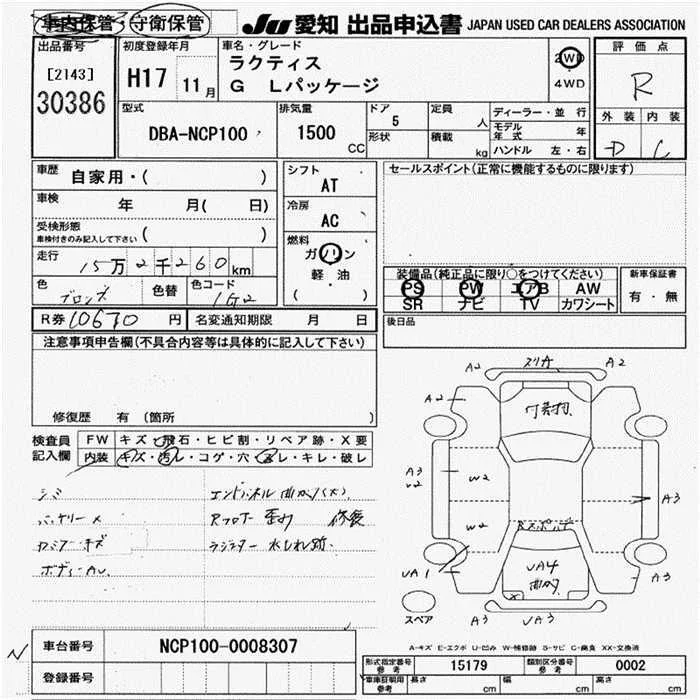 車内保管 守衛保管 JU 愛知 出品申込書 JAPAN USED CAR DEALERS ASSOCIATION
出品番号
[2143]
30386
初度登録年月
H17 11月
車名・グレード
ラクティス
G Lパッケージ
2WD
4WD
評価点
R
外装 内装
D C
型式
DBA-NCP100
排気量
1500
CC
ドア
5
形状
定員
人
積載
kg
ディーラー・並行
モデル年式 年
ハンドル 左・右
車歴
自家用・( )
車検 年 月( 日)
受検形態
車検付きのみ記入して下さい ( )
走行
15万2千260km
色
ブロンズ
色替
色コード
1G2
シフト
AT
冷房
AC
燃料
ガソリン
軽・油
( )
セールスポイント(正常に機能するものに限ります)
装備品(純正品に限り○をつけてください)
PS PW エアB AW
SR ナビ TV カワシート
新車保証書
有・無
R券 10670 円
名変通知期限 月 日
後日品
注意事項申告欄(不具合内容等は具体的に記入して下さい)
修復歴 有 (箇所 )
検査員
記入欄
FW キズ・飛石・ヒビ割・リペア跡・X要
内装 キズ・汚レ・コゲ・穴・スレ・キレ・破レ
シミ
バッテリー×
ボディーAU
エンドパネル曲がり(大)
Rフロアー歪み 修復
ラジエター 水もれ跡
A2 スリA A2
A2
A3
W2
W2
W2
A3
Rスポイラ
UA4
曲がり
UA1
A3
A3
UA3
スペア
A-キズ E-エクボ U-凹み W-補修跡 S-サビ C-腐食 XX-交換済
N
車台番号 NCP100-0008307
登録番号
形式指定番号
参考
15179
類別区分番号
参考
0002
車庫証明用
参考
長さ cm 幅 cm 高さ cm